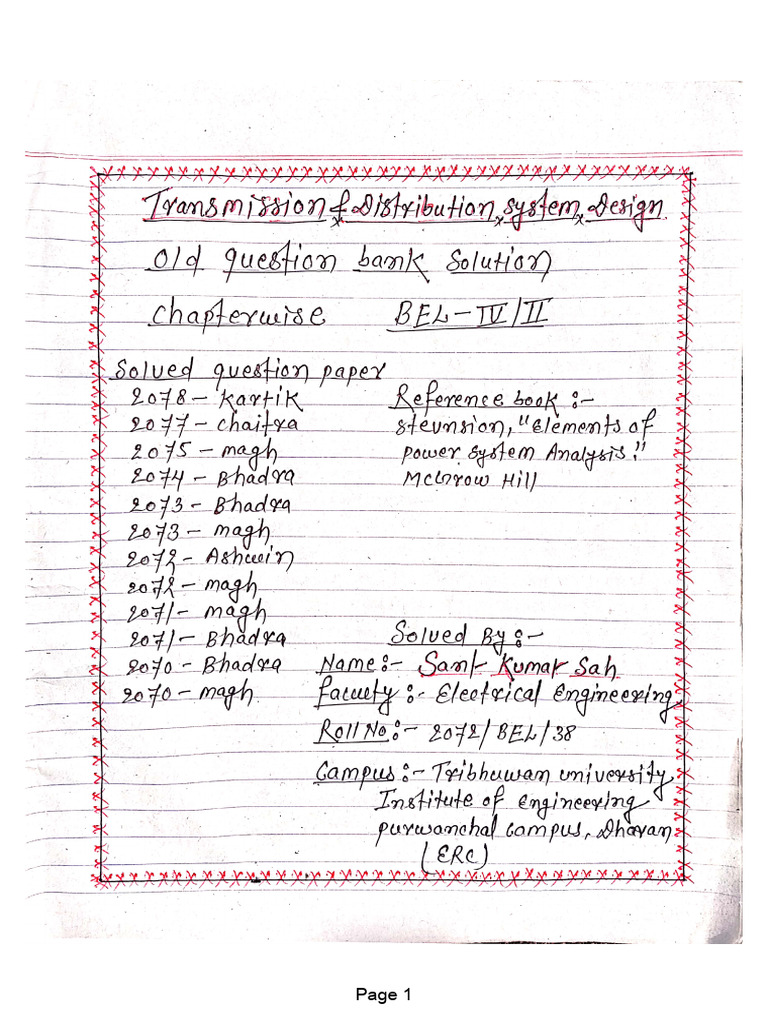 Transmission & Distribution system Design
Old question bank Solution
Chapterwise BEL-IV/II
Solved question paper
2078 - Kartik
2077 - Chaitra
2075 - magh
2074 - Bhadra
2073 - Bhadra
2073 - magh
2072 - Ashwin
2072 - magh
2071 - magh
2071 - Bhadra
2070 - Bhadra
2070 - magh
Reference book :-
stevnsion, "Elements of
power system Analysis."
McGrow Hill
Solved By :-
Name :- Sant Kumar Sah
Faculty :- Electrical Engineering
Roll No :- 2072/BEL/38
Campus :- Tribhuwan university
Institute of engineering
purwanchal campus, Dharan
(ERC)
Page 1